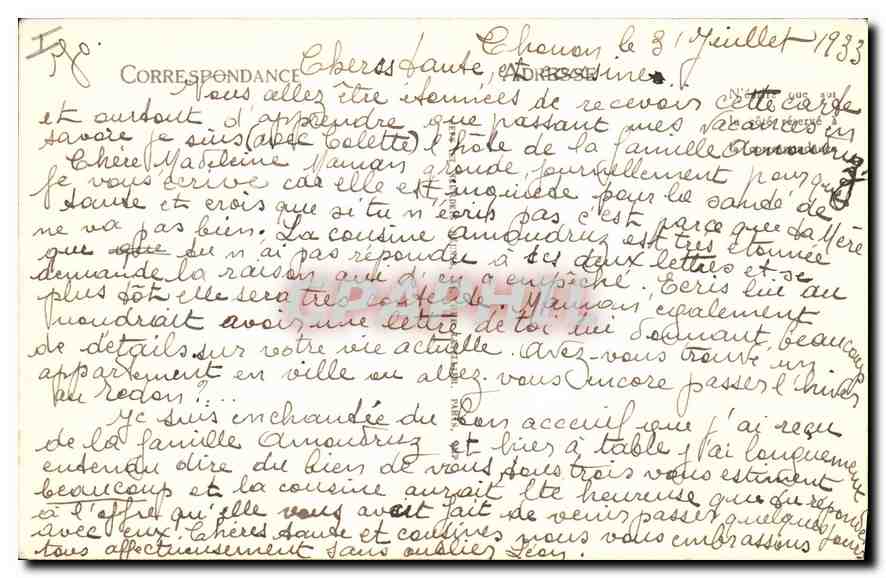 Thonon le 31 Juillet 1933
CORRESPONDANCE
ADRESSE
Chères tante et cousines
Vous allez être étonnées de recevoir cette carte
et surtout d'apprendre que passant mes vacances en
savoie je suis (avec Colette) l'hôte de la famille Amoudruz
Chère Madeleine Maman gronde journellement pour que
je vous écrive car elle est inquiète pour la santé de
tante et crois que si tu n'écris pas c'est parce que ta Mère
ne va pas bien. La cousine Amoudruz est très étonnée
que tu n'ai pas répondu à ses deux lettres et se
demande la raison qui t'en a empêché. Ecris lui au
plus tôt elle sera très contente. Maman également
voudrait avoir une lettre de toi lui donnant beaucoup
de détails sur votre vie actuelle. Avez-vous trouvé un
appartement en ville ou allez-vous encore passer l'hiver
au redon?...
Je suis enchantée du bon acceuil que j'ai reçu
de la famille Amoudruz et hier à table j'ai longuement
entendu dire du bien de vous tous trois vous estiment
beaucoup et la cousine aurait été heureuse que tu répondes
à l'offre qu'elle vous avait fait de venir passer quelques jours
avec eux. Chères tante et cousines nous vous embrassons
tous affectueusement sans oublier Léon.